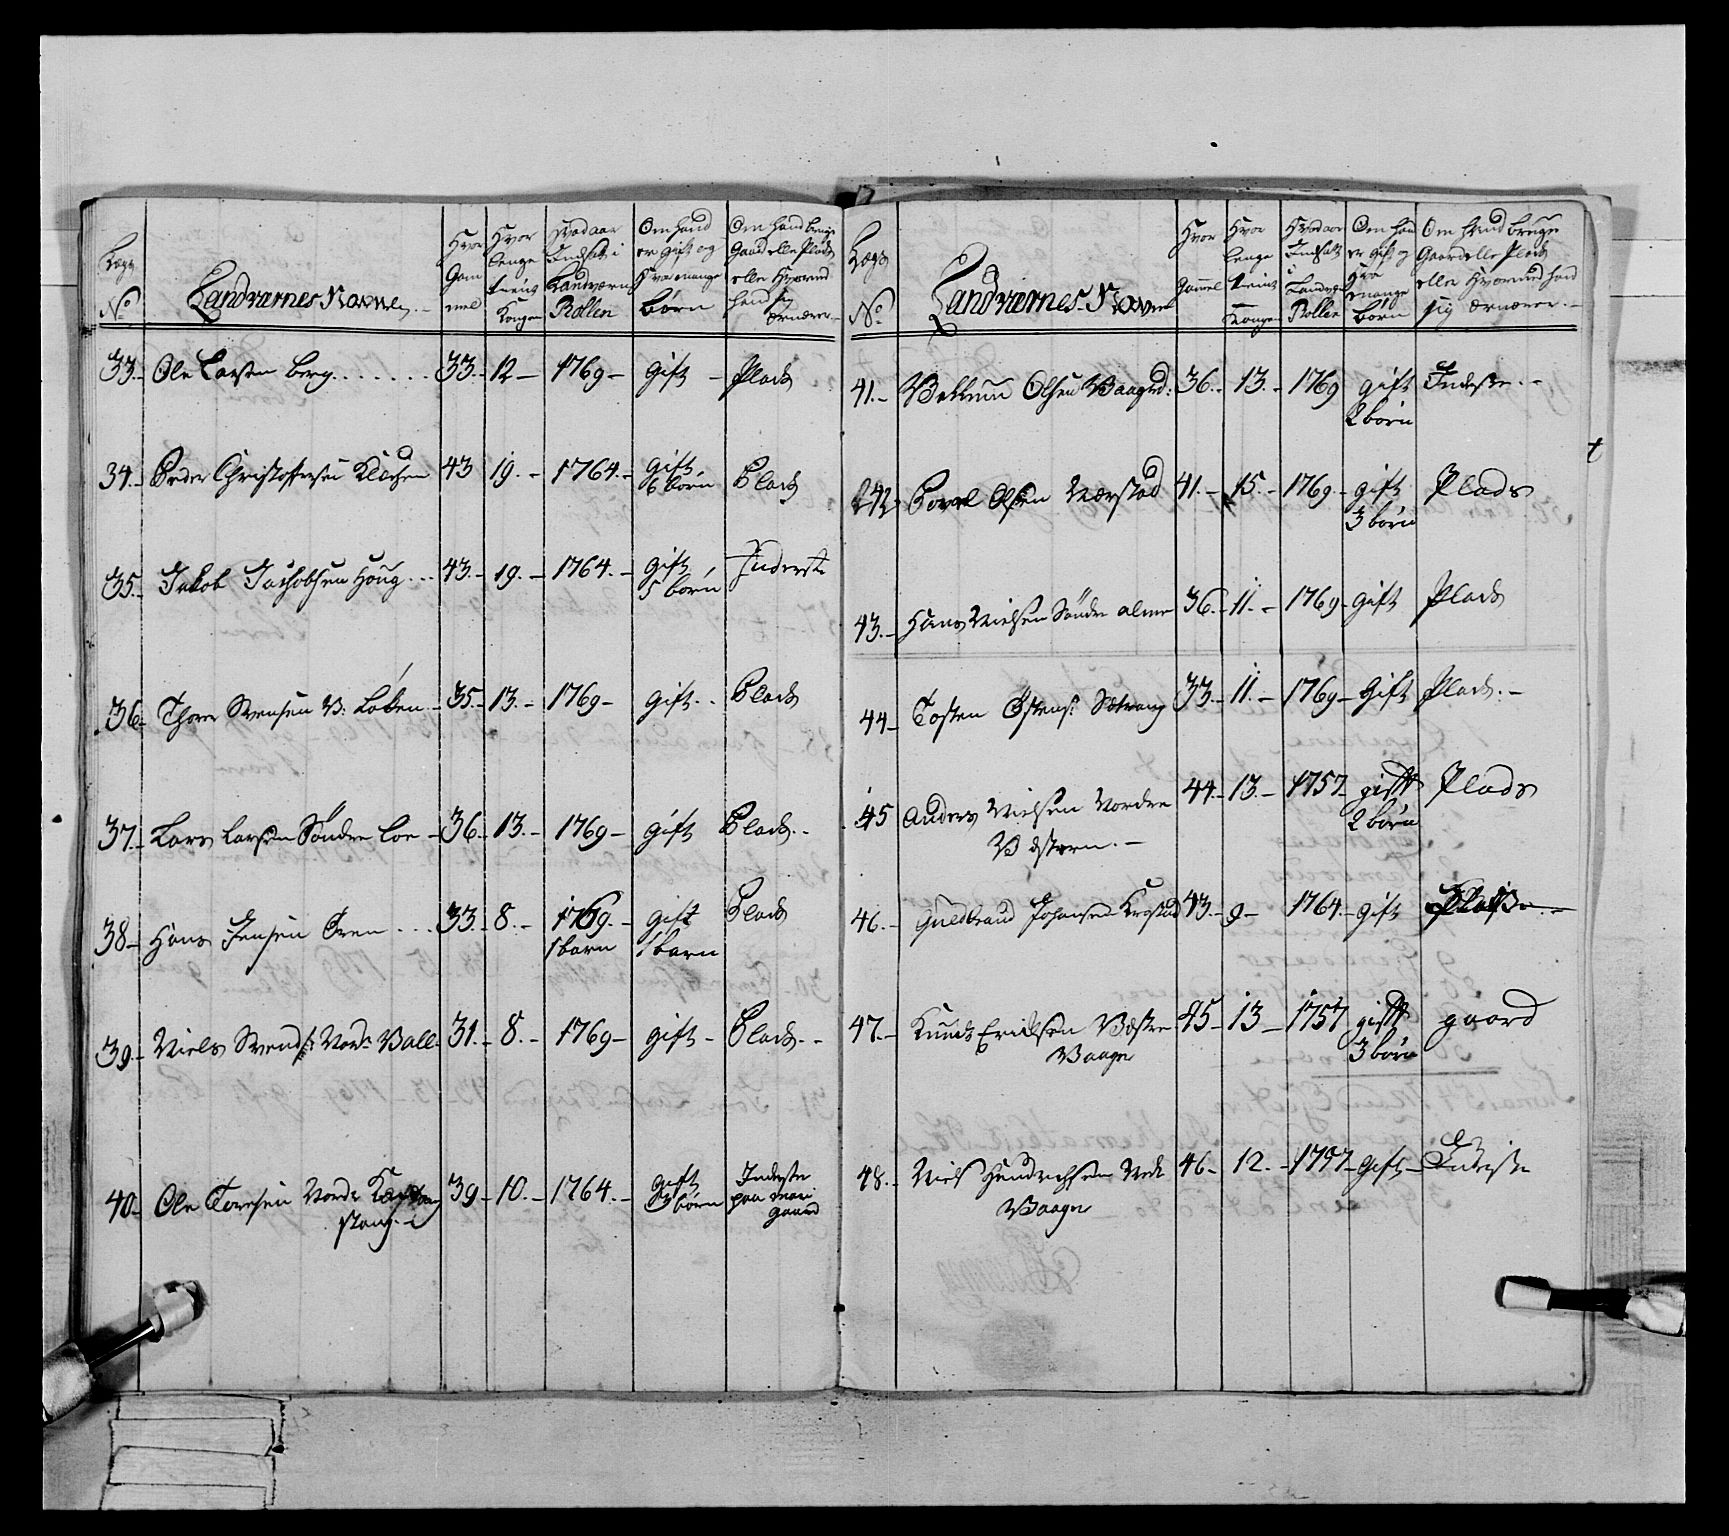 Lægs No | Landværnes Navne | Hvor Gammel | Hvor lenge tient Kongen | Hvad aar Indsatt i Landværns Rollen | Om hand er gift og Hvor mange børn | Om hand bruge Gaard elle Plads elle Hvormed hand sig ærnærer
33. Ole Larsen Berg 33. 12 1769 gift Plads
34. Peder Christophersen 43 19. 1764. gift 6 børn Plads
35. Jakob Jachobsen Houg 43. 19. 1764. gift 5 børn Inderste
36 Thore Svensen V: Løken 35. 13. 1769 gift Plads
37. Lars Larsen Søndre Loe 36. 13. 1769 gift Plads
38 Hans Jensen 33. 8. 1769. gift Plads
1 barn 1 barn
39. Niels Svends: Nord: Ball 31. 8. 1769 gift Plads
40. Ole Toresen Nordr 39 10. 1764. gift 3 børn Inderste paa gaard
stang
Lægs No. | Landværnes Navne | Hvor Gammel | Hvor lenge tient Kongen | Hvad aar Indsatt i Landvær Rollen | Om hand er gift og Hvor mange børn | Om Hand bruge Gaard elle Plads elle Hvormed hand sig ærnærer
41. Olsen 36. 13. 1769 gift 2 børn Inderste
42 Povel Olsen Nærstad 41. 15. 1769 gift 3 børn Plads
43. Hans Nielsen Søndre alme 36. 11. 1769 gift Plads
44 Tosten Østens: 33. 11. 1769 Gift Plads
45 Anders Nielsen Nordre 44. 13. 1757 gifft 2 børn Plads
46. Guldbrand Johansen Krogstad 43. 9 1764 gift
47. Knud Erichsen Vestre 45 13 1757 gifft 3 børn gaard
Vaagn
48. Niels Hendrichsen Nede 46 12. 1757 gift Inderste
Vaagn